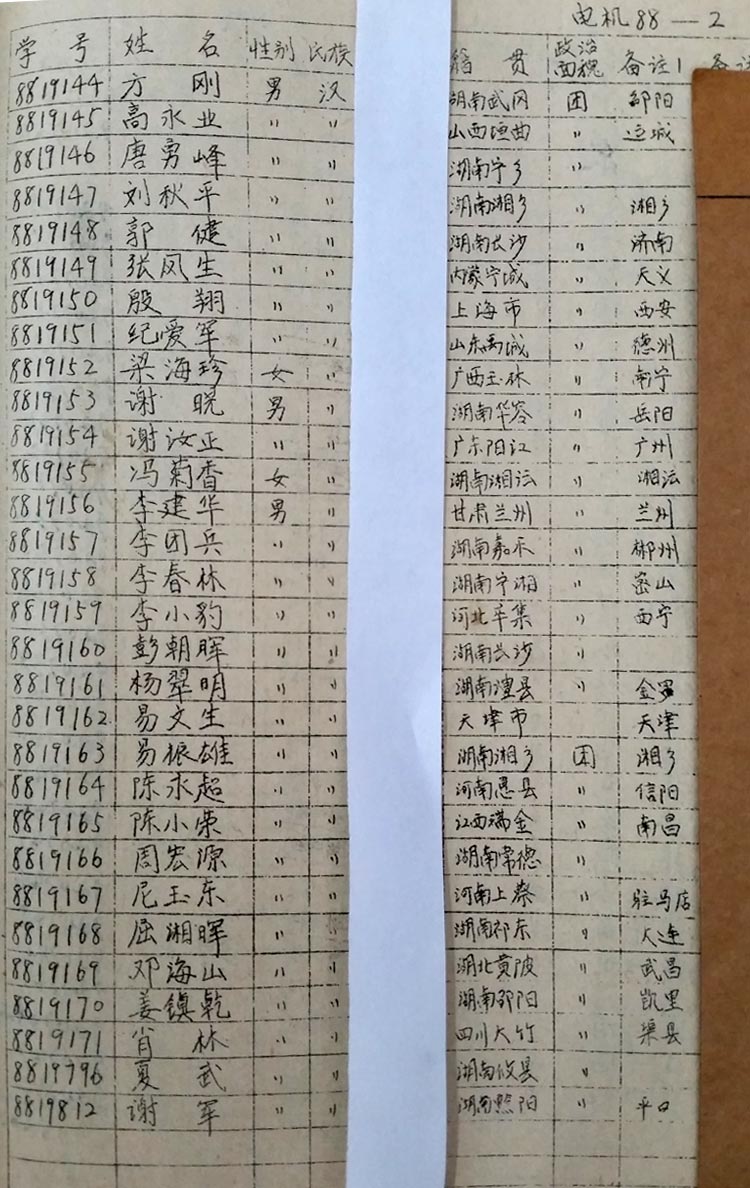 电机88—2
学号 姓名 性别 民族 籍贯 政治面貌 备注1 备注
8819144 方刚 男 汉 湖南武冈 团 邵阳
8819145 高永业 〃 〃 山西垣曲 〃 运城
8819146 唐勇峰 〃 〃 湖南宁乡 〃
8819147 刘秋平 〃 〃 湖南湘乡 〃 湘乡
8819148 郭健 〃 〃 湖南长沙 〃 济南
8819149 张凤生 〃 〃 内蒙宁城 〃 天义
8819150 殷翔 〃 〃 上海市 〃 西安
8819151 纪爱军 〃 〃 山东禹城 〃 德州
8819152 梁海珍 女 〃 广西玉林 〃 南宁
8819153 谢晓 男 〃 湖南华容 〃 岳阳
8819154 谢汝正 〃 〃 广东阳江 〃 广州
8819155 冯菊香 女 〃 湖南湘沄 〃 湘沄
8819156 李建华 男 〃 甘肃兰州 〃 兰州
8819157 李团兵 〃 〃 湖南嘉禾 〃 郴州
8819158 李春林 〃 〃 湖南宁湘 〃 密山
8819159 李小豹 〃 〃 河北辛集 〃 西宁
8819160 彭朝晖 〃 〃 湖南长沙 〃
8819161 杨翠明 〃 〃 湖南澧县 〃 金罗
8819162 易文生 〃 〃 天津市 天津
8819163 易振雄 〃 〃 湖南湘乡 团 湘乡
8819164 陈永超 〃 〃 河南息县 〃 信阳
8819165 陈小荣 〃 〃 江西瑞金 〃 南昌
8819166 周宏源 〃 〃 湖南常德 〃
8819167 尼玉东 〃 〃 河南上蔡 〃 驻马店
8819168 屈湘晖 〃 〃 湖南祁东 〃 大连
8819169 邓海山 〃 〃 湖北黄陂 〃 武昌
8819170 姜镇乾 〃 〃 湖南邵阳 〃 凯里
8819171 肖林 〃 〃 四川大竹 〃 渠县
8819796 夏武 〃 〃 湖南攸县 〃
8819812 谢军 〃 〃 湖南黔阳 〃 平口